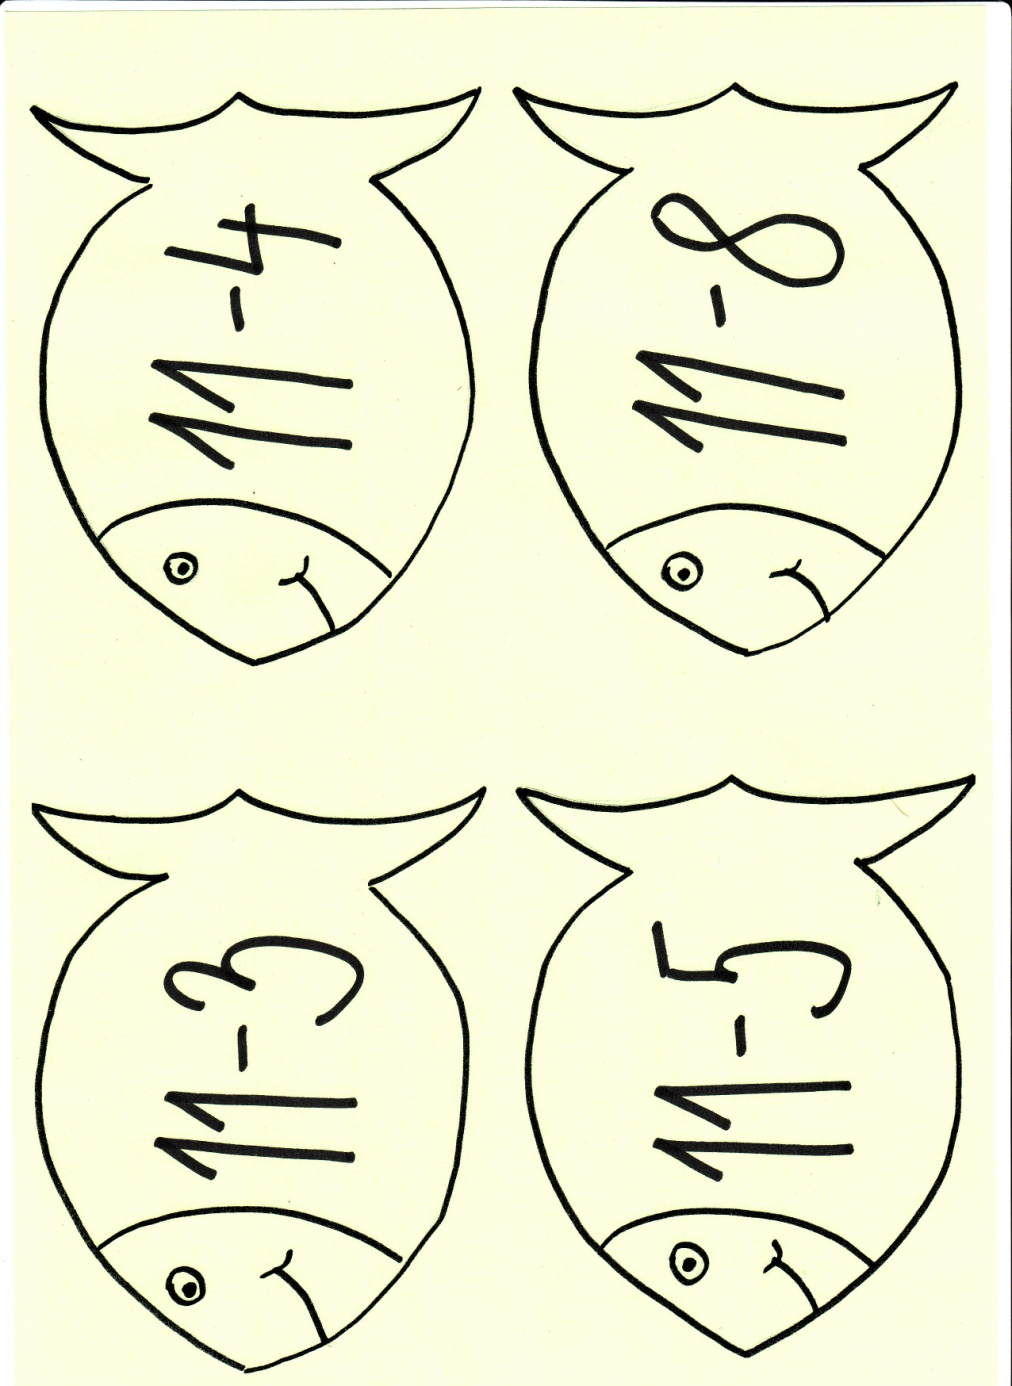 11-4
11-8
11-3
11-5